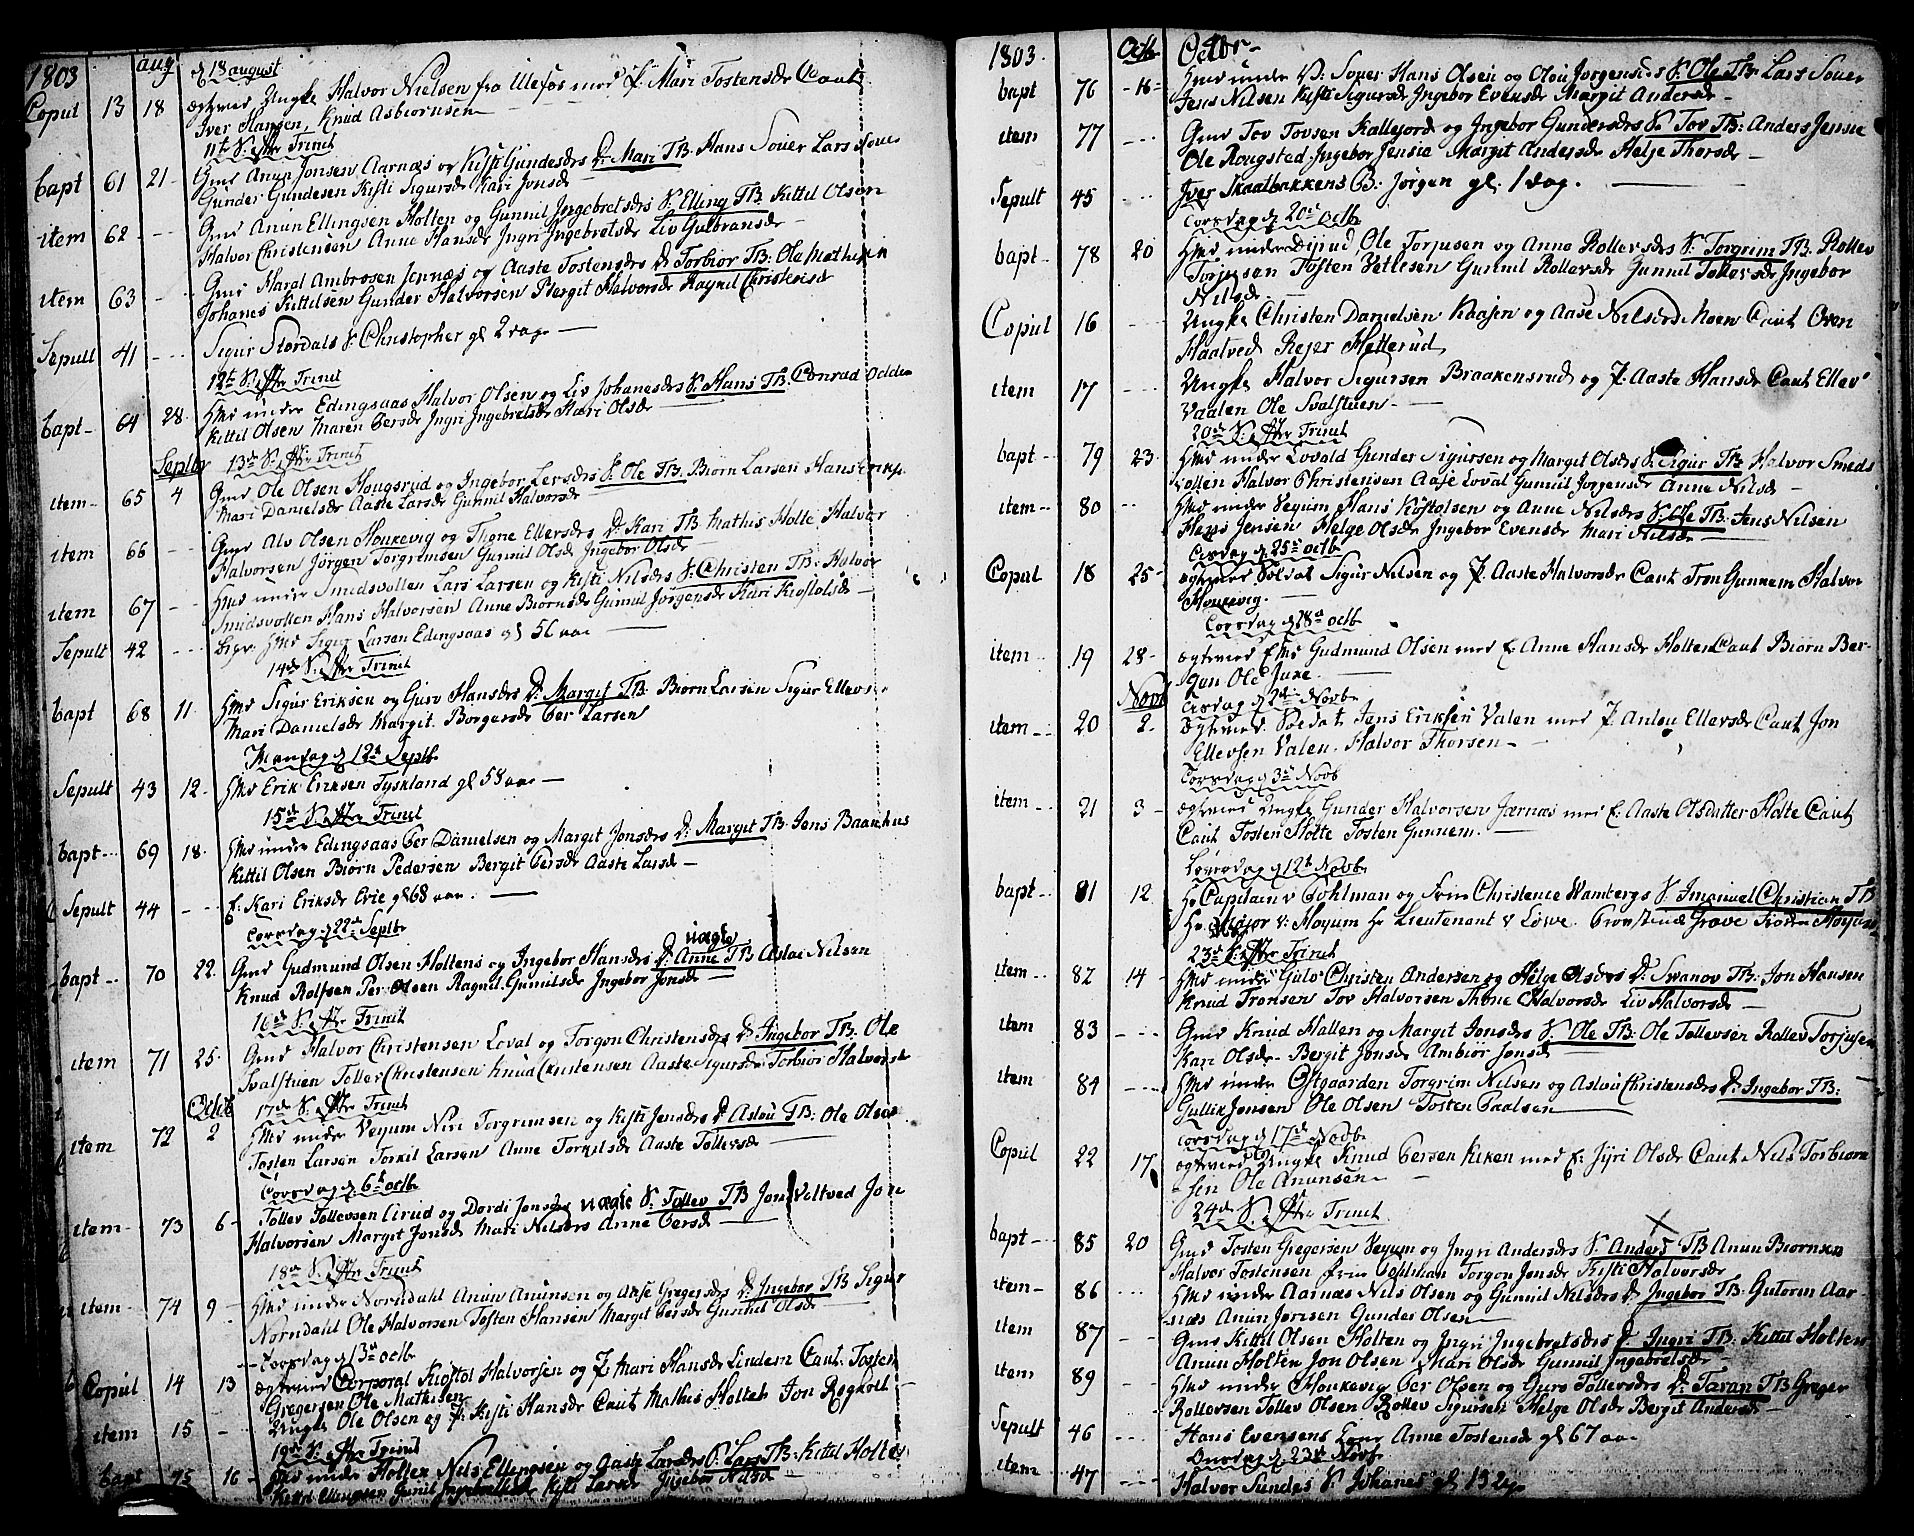 1803 aug d 18 august
Copul 13 18 ægteviet Ungke Halvor Nielsen fra Ulefos med P. Mari Tostensdr Caut
Iver Hansen, Knud Asbiornsen
11te S. eftr Trinit
bapt 61 21 Gmd Anun Jonsen Aarnæs og Kisti Gundesdr D. Mari TB. Hans Souer Lars Soue
Gunder Gundesen Kisti Sigursdr Kari Jonsdr
item 62 Gmd Anun Ellingsen Holten og Gunnil Ingebretsdr S. Elling TB. Kittil Olsen
Halvor Christensen Anne Hansdr Ingri Ingebretsdr Liv Gulbransdr
item 63 Gmd Haral Ambrosen Jernæs og Aaste Tostensdr D. Torbior TB. Ole Mathesen
Johanes Kittilsen Gunder Halvorsen Bergit Halvorsdr Raynil Christensdr
Sepult 41 Sigur Stordals S. Christopher gl 2 dage
12te S. eftr Trinit
bapt 64 28 Hmd under Edingsaas Halvor Olsen og Liv Johanesdr S. Hans TB. Conrad Odden
Kittil Olsen Maren Persdr Ingri Ingebretsdr Kari Olsdr
Septbr 13de S. eftr Trinit
item 65 4 Gmd Ole Olsen Hougsrud og Ingebor Lersdr S. Ole TB. Biorn Larsen Hans
Mari Danielsdr Aaste Larsdr Gunnil Halvorsdr
item 66 Gmd Alv Olsen Houkevig og Thone Ellefsdr D. Kari TB Mathis Holte Halvor
Halvorsen Jörgen Torgrimsen Gunnil Olsdr Ingebor Olsdr
item 67 Hmd under Smedsvollen Lars Larsen og Kisti Nilsdr S. Christen TB. Halvor
Smedsvollen Hans Halvorsen Anne Biornsdr Gunnil Jörgensdr Kari Kiostolsdr
Sepult 42 Hmd Sigur Larsen Edingsaas gl 56 aar
14de S. eftr Trinit
bapt 68 11 Hmd Sigur Eriksen og Guro Hansdr D. Margit TB. Biorn Larsen Sigur Ellevs
Mari Danielsdr Margit Borgersdr Per Larsen
Mandag d 12te Septb
Sepult 43 12 Hmd Erik Eriksen Tyskland gl 58 aar
15de S. eftr Trinit
bapt 69 18 Hmd under Edingsaas Per Danielsen og Margit Jonsdr D. Margit TB. Jens Baanhus
Kittil Olsen Biorn Pedersen Bergit Persdr Aaste Larsdr
Sepult 44 E. Kari Eriksdr Erie gl 68 aar
Torsdag d 22de Septb
bapt 70 22 Gmd Gudmund Olsen Holtens og Ingebor Hansdr uægte D. Anne TB Aslou Nilsen
Knud Rolfsen Per Olsen Ragnil Gunnilsdr Ingebor Jonsdr
16de S. eftr Trinit
item 71 25 Gmd Halvor Christensen Loval og Torgon Christensdr D. Ingebor TB. Ole
Svalstuen Tollef Christensen Knud Christensen Aaste Sigursdr Torbior Halvorsdr
Octb 17de S. eftr Trinit
item 72 2 Hmd under Veyum Niri Torgrimsen og Kisti Jensdr D. Aslou TB. Ole Olsen
Tosten Larsen Torkil Larsen Anne Torkilsdr Aaste Tollefsdr
Torsdag d 6te octb
item 73 6 Tollev Tollevsen Eirud og Dordi Jonsdr uægte S. Tollev TB Jon Veltved Jon
Halvorsen Margit Jonsdr Mari Nilsdr Anne Persdr
18de S. eftr Trinit
item 74 9 Hmd under Norndahl Anun Anunsen og Aase Gregersdr D. Ingebor TB Sigur
Norndahl Ole Halvorsen Tosten Hansen Margit Persdr Gunnil Olsdr
Torsdag d 13de octb
Copul 14 13 ægteviet Corporal Kiostol Halvorsen og P. Mari Hansdr Lindem Caut. Tosten
Gregersen Ole Mathisen
item 15 Ungke Ole Olsen og P. Kisti Hansdr Caut Mathis Holteh Jon Rogholt
19de S. eftr Trinit
bapt 75 16 Hmd under Holten Nils Ellingsen og Aaste Larsdr S. Lars TB. Kittil Holten
Kittil Ellingsen Gunil Ingebretsdr Kisti Larsdr Ingebor Nilsdr
1803 Octb Octbr
bapt 76 16 Hmd under V. Souer Hans Olsen og Olou Jorgensdr S. Ole TB. Lars Souer
Jens Nilsen Kisti Sigursdr Ingebor Evensdr Margit Andersdr
item 77 Gmd Tov Tovsen Kallejord og Ingebor Gundersdr S. Tov TB. Anders Jensie
Ole Rougsted Ingebor Jensie Margit Andersdr Helje Thorsdr
Sepult 45 Iver Skaatbakkens B. Jörgen gl. 1 dag.
Torsdag d 20de octb
bapt 78 20 Hmd under Eirud Ole Torjusen og Anne Rollevsdr S. Torgrim TB. Rollev
Torjusen Tosten Vetlesen Gunnil Rollevsdr Gunnil Tollevsdr Ingebor
Nilsdr
Copul 16 Ungke Christen Danielsen Kaasen og Aase Nilsdr Moen Caut Oven
Haatved Rejer Hetterud
item 17 Ungke Halvor Sigursen Braakensrud og P. Aaste Hansdr Caut Ellev
Vaalen Ole Svalstuen
20de S. eftr Trinit
bapt 79 23 Hmd under Lovald Gunder Sigursen og Margit Olsdr S. Sigur TB. Halvor Smeds
vollen Halvor Christensen Aase Loval Gunnil Jorgensdr Anne Nilsdr
item 80 Hmd under Veyum Hans Kiostolsen og Anne Nilsdr S. Ole TB. Jens Nilsen
Hans Jensen Helge Olsdr Ingebor Evensdr Mari Nilsdr
Tirsdag d 25de octb
Copul 18 25 ægteviet Soldat Sigur Nilsen og P. Aaste Halvorsdr Caut Tron Gunnem Halvor
Houkevig.
Torsdag d 28de octb
item 19 28 ægteviet EMd Gudmund Olsen med E. Anne Hansdr Holten Caut Biorn Ber-
gan Ole Juxe.
Novb Tirsdag d 2de Novb
item 20 2 ægteviet Soldat Jens Eriksen Valen med P. Anlou Ellevsdr Caut Jon
Ellevsen Valen. Halvor Thorsen
Torsdag d 3de Novb
item 21 3 ægteviet Ungke Gunder Halvorsen Jarnæs med E. Aaste Olsdatter Holte Caut
Caut Tosten Holte Tosten Gunnem.
Löverdag d 12te Novb
bapt 81 12 Hr Capitain v Pohlman og Frue Christence Wambergs S. Imanuel Christian TB
Hr. Major v: Hoyum Hr Lieutenant v Löwe. Provstinde Grave Frøken Hoyum
23de S. eftr Trinit
item 82 14 Hmd under Gulv Christen Andersen og Helge Olsdr D. Swanov TB. Jon Hansen
Knud Tronsen Tov Halvorsen Thone Halvorsdr Liv Halvorsdr
item 83 Gmd Knud Hallen og Margit Jonsdr S. Ole TB. Ole Tollevsen Rollev Torjusen
Kari Olsdr Bergit Jonsdr Ambior Jonsdr
item 84 Hmd under Ostgaarden Torgrim Nilsen og Aslou Christensdr D. Ingebor TB.
Gullik Jonsen Ole Olsen Tosten Paalsen
Torsdag d 17de Novb
Copul 22 17 ægteviet Ungke Knud Persen Kiken med E. Jyri Olsdr Caut Nils Torbiorn
sen Ole Anunsen
24de S. eftr Trinit
bapt 85 20 Gmd Tosten Gregersen Veyum og Ingri Andersdr S. Anders TB Anun Biornsen
Halvor Tostensen frue Pohlman Torgon Jonsdr Kisti Halvorsdr
item 86 Hmd under Aarnæs Nils Olsen og Gunnil Nilsdr D. Ingebor TB. Gutorm Aar-
næs Anun Jonsen Gunder Olsen
item 87 Gmd Kittil Olsen Holten og Ingri Ingebretsdr D. Ingri TB. Kittil Holten
Anun Holten Jon Olsen Mari Olsdr Gunnil Ingebretsdr
item 89 Hmd under Houkevig Per Olsen og Guro Tollevsdr D. Taran TB Greger
Rollevsen Tollev Olsen Rollev Sigursen Helge Olsdr Bergit Andersdr
Sepult 46 Hans Evensens Kone Anne Tostensdr gl 67 aar
Onsdag d 23de Novb
item 47 Halvor Sundes S. Johanes gl 13 Uger